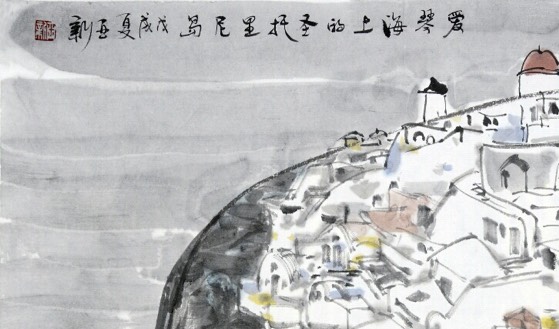 爱琴海上的圣托里尼岛戊戌夏亚新